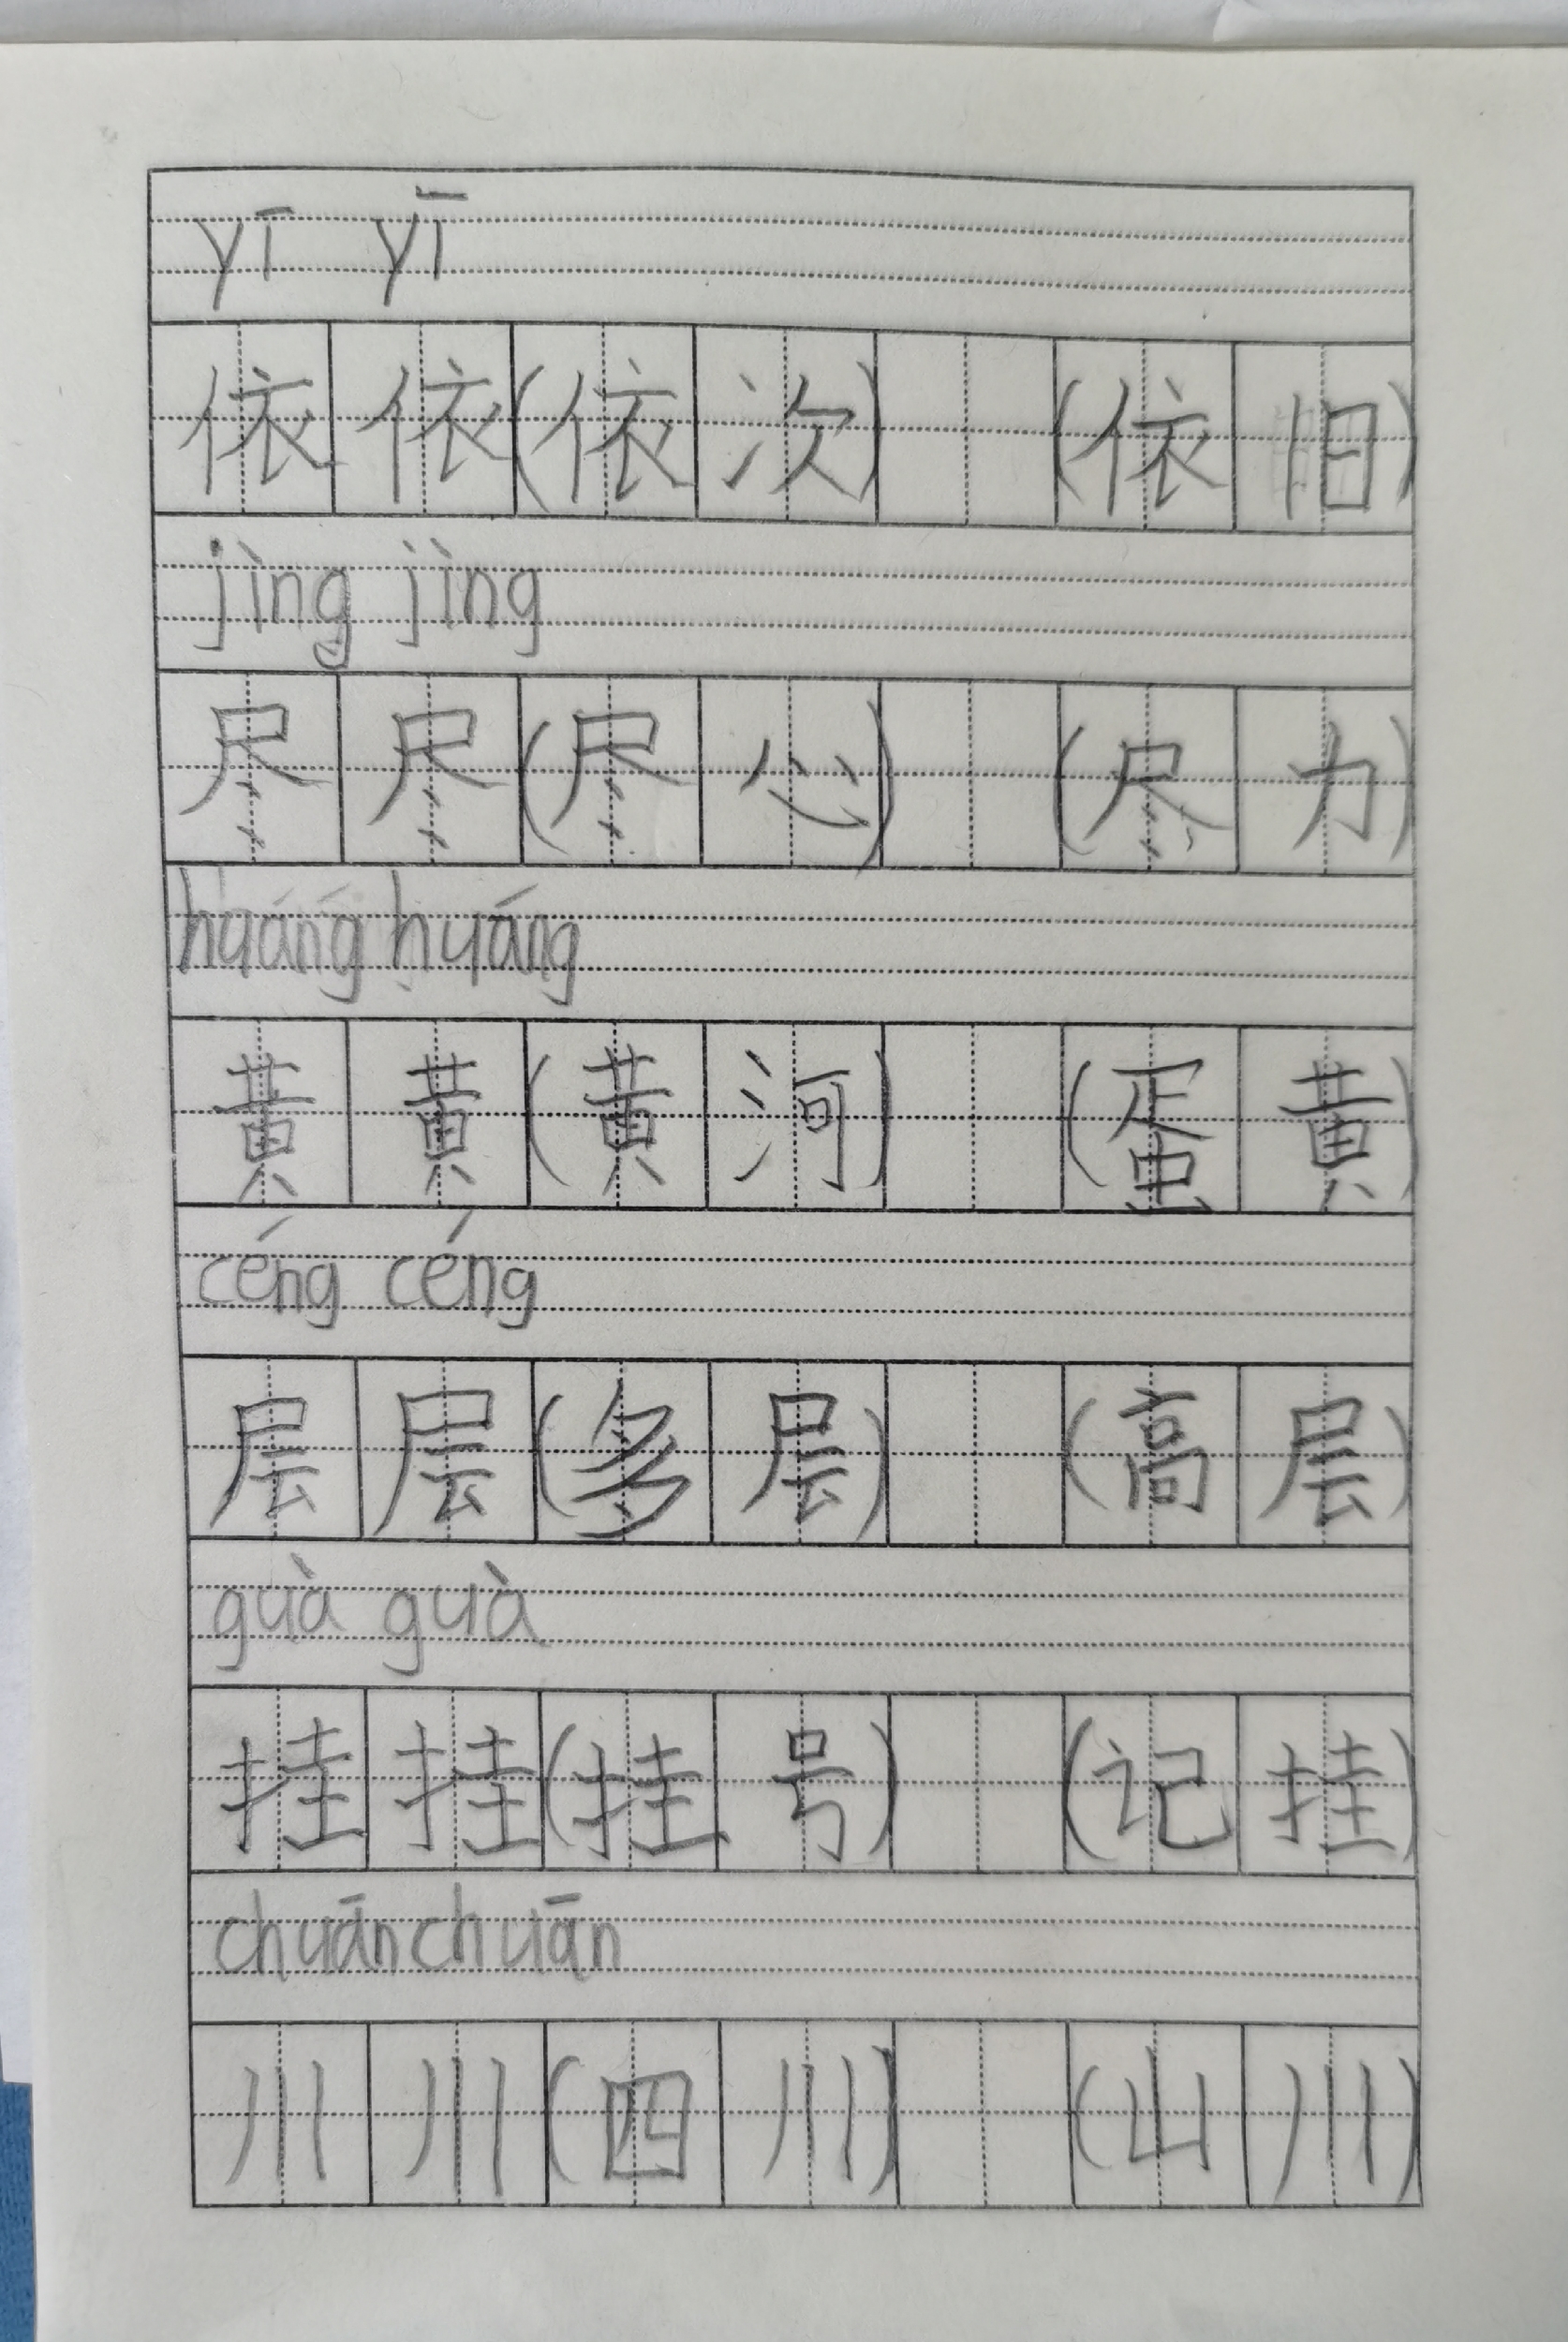 yī yī
依 依 (依 次) (依 旧)
jìng jìng
尽 尽 (尽 心) (尽 力)
huáng huáng
黄 黄 (黄 河) (蛋 黄)
céng céng
层 层 (多 层) (高 层)
guà guà
挂 挂 (挂 号) (记 挂)
chuān chuān
川 川 (四 川) (山 川)